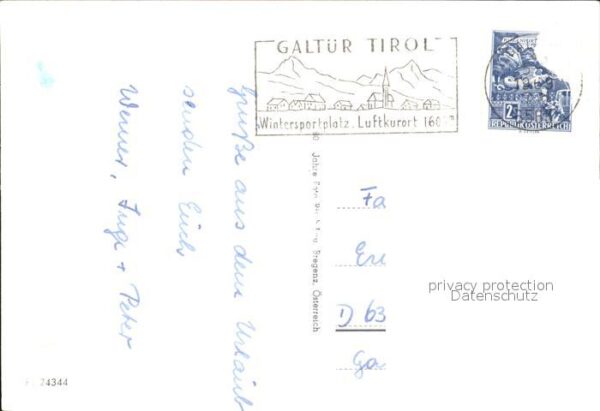 GALTÜR TIROL
Wintersportplatz. Luftkurort
2
REPUBLIK ÖSTERREICH
Grüße aus dem Urlaub
senden Euch
Werner, Inge + Peter
Jahre Foto Bregenz, Österreich
Fa
D 63
privacy protection
Datenschutz
74344